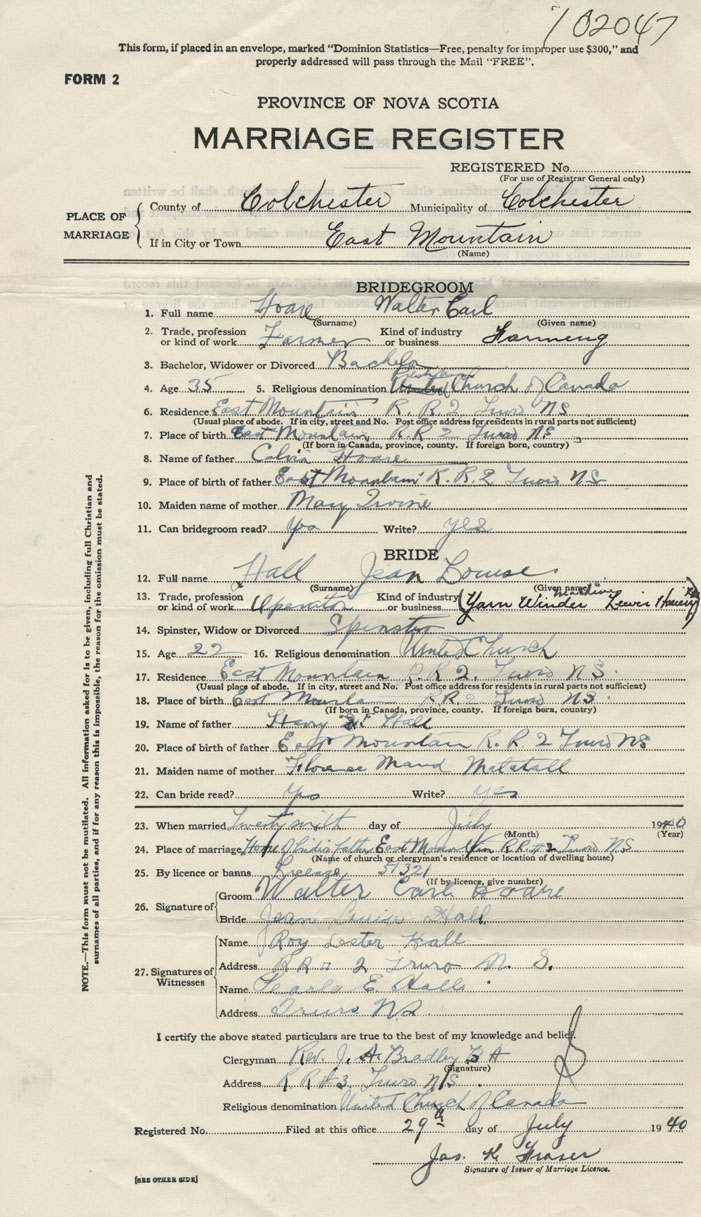 102047
This form, if placed in an envelope, marked "Dominion Statistics—Free, penalty for improper use $300," and
properly addressed will pass through the Mail "FREE".
FORM 2
PROVINCE OF NOVA SCOTIA
MARRIAGE REGISTER
REGISTERED No.
(For use of Registrar General only)
PLACE OF MARRIAGE
County of Colchester Municipality of Colchester
If in City or Town East Mountain
(Name)
BRIDEGROOM
1. Full name Hoare Walter Earl
(Surname) (Given name)
2. Trade, profession or kind of work Farmer Kind of industry or business Farming
3. Bachelor, Widower or Divorced Bachelor
4. Age 35 5. Religious denomination Church of Canada
6. Residence East Mountain R. R. 2 Truro NS
(Usual place of abode. If in city, street and No. Post office address for residents in rural parts not sufficient)
7. Place of birth East Mountain R. R. 2 Truro NS
(If born in Canada, province, county. If foreign born, country)
8. Name of father Calvin Hoare
9. Place of birth of father East Mountain R. R. 2 Truro NS
10. Maiden name of mother Mary Irvine
11. Can bridegroom read? Yes Write? yes
BRIDE
12. Full name Hall Jean Louise
(Surname) (Given name)
13. Trade, profession or kind of work Operator Kind of industry or business (Yarn Winder machine Lewis
14. Spinster, Widow or Divorced Spinster
15. Age 22 16. Religious denomination United Church
17. Residence East Mountain R. R. 2. Truro N S.
(Usual place of abode. If in city, street and No. Post office address for residents in rural parts not sufficient)
18. Place of birth East Mountain R. R. 2 Truro NS.
(If born in Canada, province, county. If foreign born, country)
19. Name of father Hall
20. Place of birth of father East Mountain R. R 2 Truro NS
21. Maiden name of mother Florence Maud
22. Can bride read? Yes Write? yes
23. When married Twentysixth day of July 1940
(Month) (Year)
24. Place of marriage Home of brides father East Mountain R.R # 2 Truro NS.
(Name of church or clergyman's residence or location of dwelling house)
25. By licence or banns License 51321
(If by licence, give number)
26. Signature of
Groom Walter Earl Hoare
Bride Jean Louise Hall
27. Signatures of Witnesses
Name Roy Lester Hall
Address R R # 2 Truro N. S.
Name Pearle E. Hall
Address Truro NS
I certify the above stated particulars are true to the best of my knowledge and belief.
Clergyman Rev. J. A. Bradley B A
(Signature)
Address R R # 3, Truro N/S.
Religious denomination United Church of Canada
Registered No. Filed at this office 29th day of July 1940
Jas. K. Fraser
Signature of Issuer of Marriage Licence.
[SEE OTHER SIDE]
NOTE.—This form must not be mutilated. All information asked for is to be given, including full Christian and
surnames of all parties, and if for any reason this is impossible, the reason for the omission must be stated.